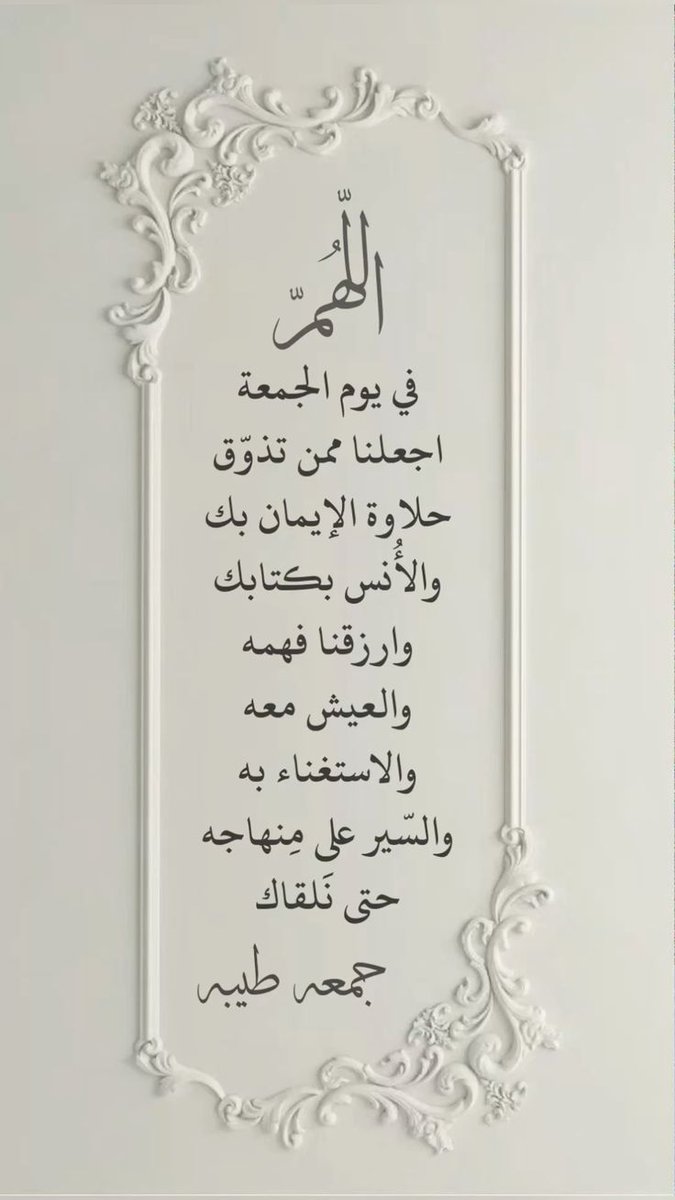 اللّهُمّ
في يوم الجمعة
اجعلنا ممن تذوّق
حلاوة الإيمان بك
والأُنس بكتابك
وارزقنا فهمه
والعيش معه
والاستغناء به
والسّير على مِنهاجه
حتى نَلقاك
جمعه طيبه